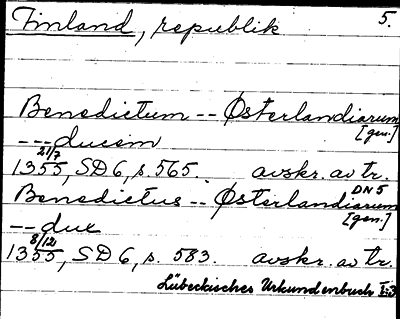 Finland, republik 5.
Benedictum -- Østerlandiarum
[gen.]
---ducem
21/7
1355, SD 6, s. 565. avskr. av tr.
DN 5
Benedictus -- Østerlandiarum
[gen.]
-- dux
8/12
1355, SD 6, s. 583. avskr. av tr.
Lübeckisches Urkundenbuch I:3